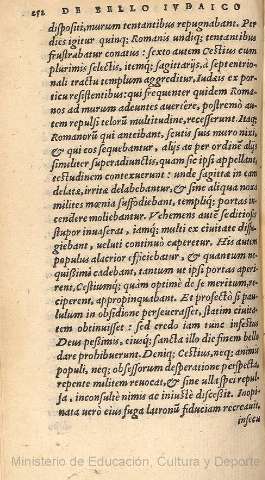 252 DE BELLO IVDAICO
dispositi, murum tentantibus repugnabant. Per
dies igitur quinq; Romanis undiq; tentantibus
frustrabatur conatus: sexto autem Cestius cum
plurimis selectis, itemq; sagittarijs, à septentrio-
nali tractu templum aggreditur, Iudæis ex por-
ticu resistentibus: qui frequenter quidem Roma-
nos ad murum adeuntes auertêre, postremò au-
tem repulsi telorũ multitudine, recesserunt. Itaq;
Romanorũ qui anteibant, scutis suis muro nixi,
& qui eos sequebantur, alijs ac per ordinẽ alijs
similiter superadiunctis, quam sic ipsi appellant,
testudinem contexuerunt: unde sagittæ in eam
delatæ, irritæ delabebantur, & sine aliqua noxa
milites mœnia suffodiebant, templiq; portas in
cendere moliebantur. Vehemens autẽ seditiosos
stupor inuaserat, iamq; multi ex ciuitate diffu-
giebant, ueluti continuò caperetur. His autem
populus alacrior efficiebatur, & quantum ne-
quissimi cadebant, tantum ut ipsi portas aperi-
rent, Cestiumq; quam optimè de se meritum, re-
ciperent, appropinquabant. Et profectò si pau-
lulum in obsidione perseuerasset, statim ciuita-
tem obtinuisset: sed credo iam tunc infestus
Deus pessimis, eiusq; sancta illo die finem bello
dare prohibuerunt. Deniq; Cestius, neq; animæ
populi, neq; obsessorum desperatione perspecta,
repente militem reuocat, & sine ulla spei repul-
sa, inconsultè nimis ac iniustè discessit. Inopi-
nata uerò eius fuga latronũ fiduciam recreauit,
insecu
Ministerio de Educación, Cultura y Deporte